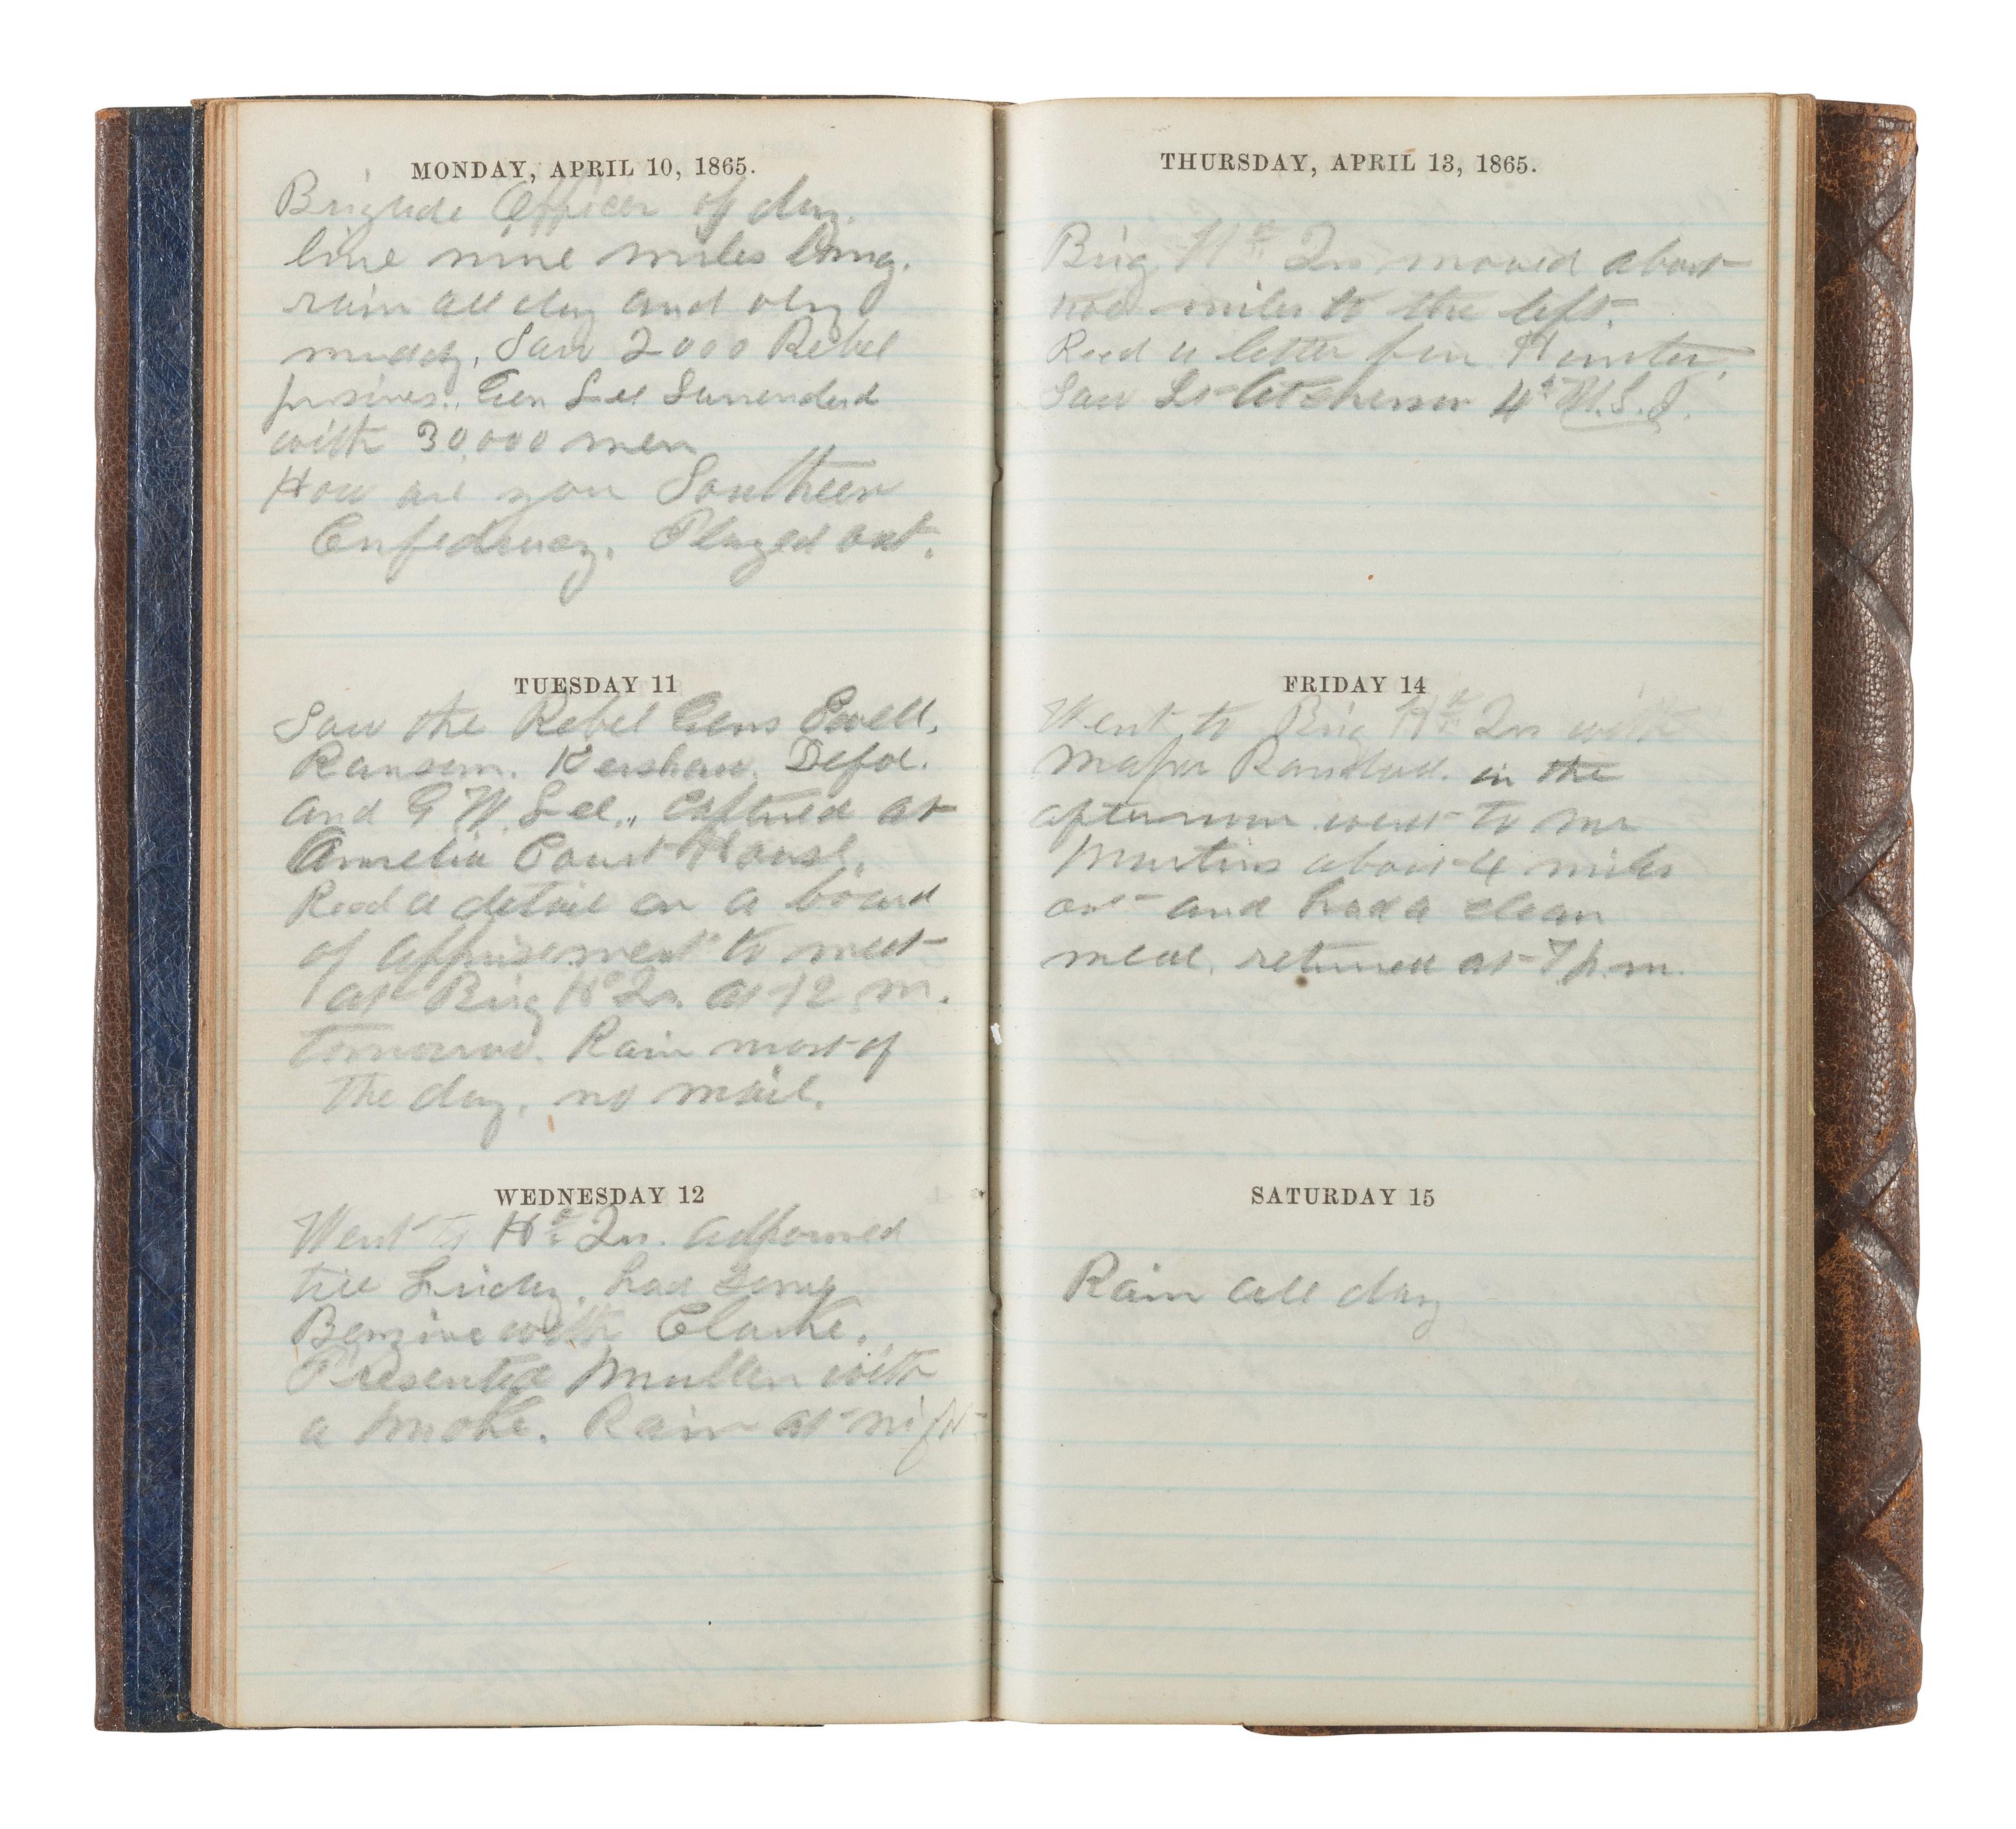 MONDAY, APRIL 10, 1865.
Brigade Officer of day.
line nine miles long.
rain all day and very
muddy, Saw 2000 Rebel
prisiners. Gen Lee Surrenderd
with 30,000 men
How are you Southeern
Confedracy. Played out.
TUESDAY 11
Saw the Rebel Gens Ewell,
Ransom. Kershaw. Defoe.
and G W. Lee., Captured at
Amelia Court House.
Recd a detail on a board
of apprisement to meet
at Brig Hd Qrs. at 12 m.
tomorrow. Rain most of
the day, no mail.
WEDNESDAY 12
Went to Hd Qrs. adjourned
till Friday. had some
Benzine with Clarke.
Presented Mullen with
a smoke. Rain at night
THURSDAY, APRIL 13, 1865.
Brig Hd Qrs moved about
two miles to the left.
Recd a letter from
Saw Lt 4th U.S.I.
FRIDAY 14
Went to Brig Hd Qrs with
Major in the
afternoon went to Mr
Martins about 4 miles
out and had a clean
meal. returned at 7 p.m.
SATURDAY 15
Rain all day